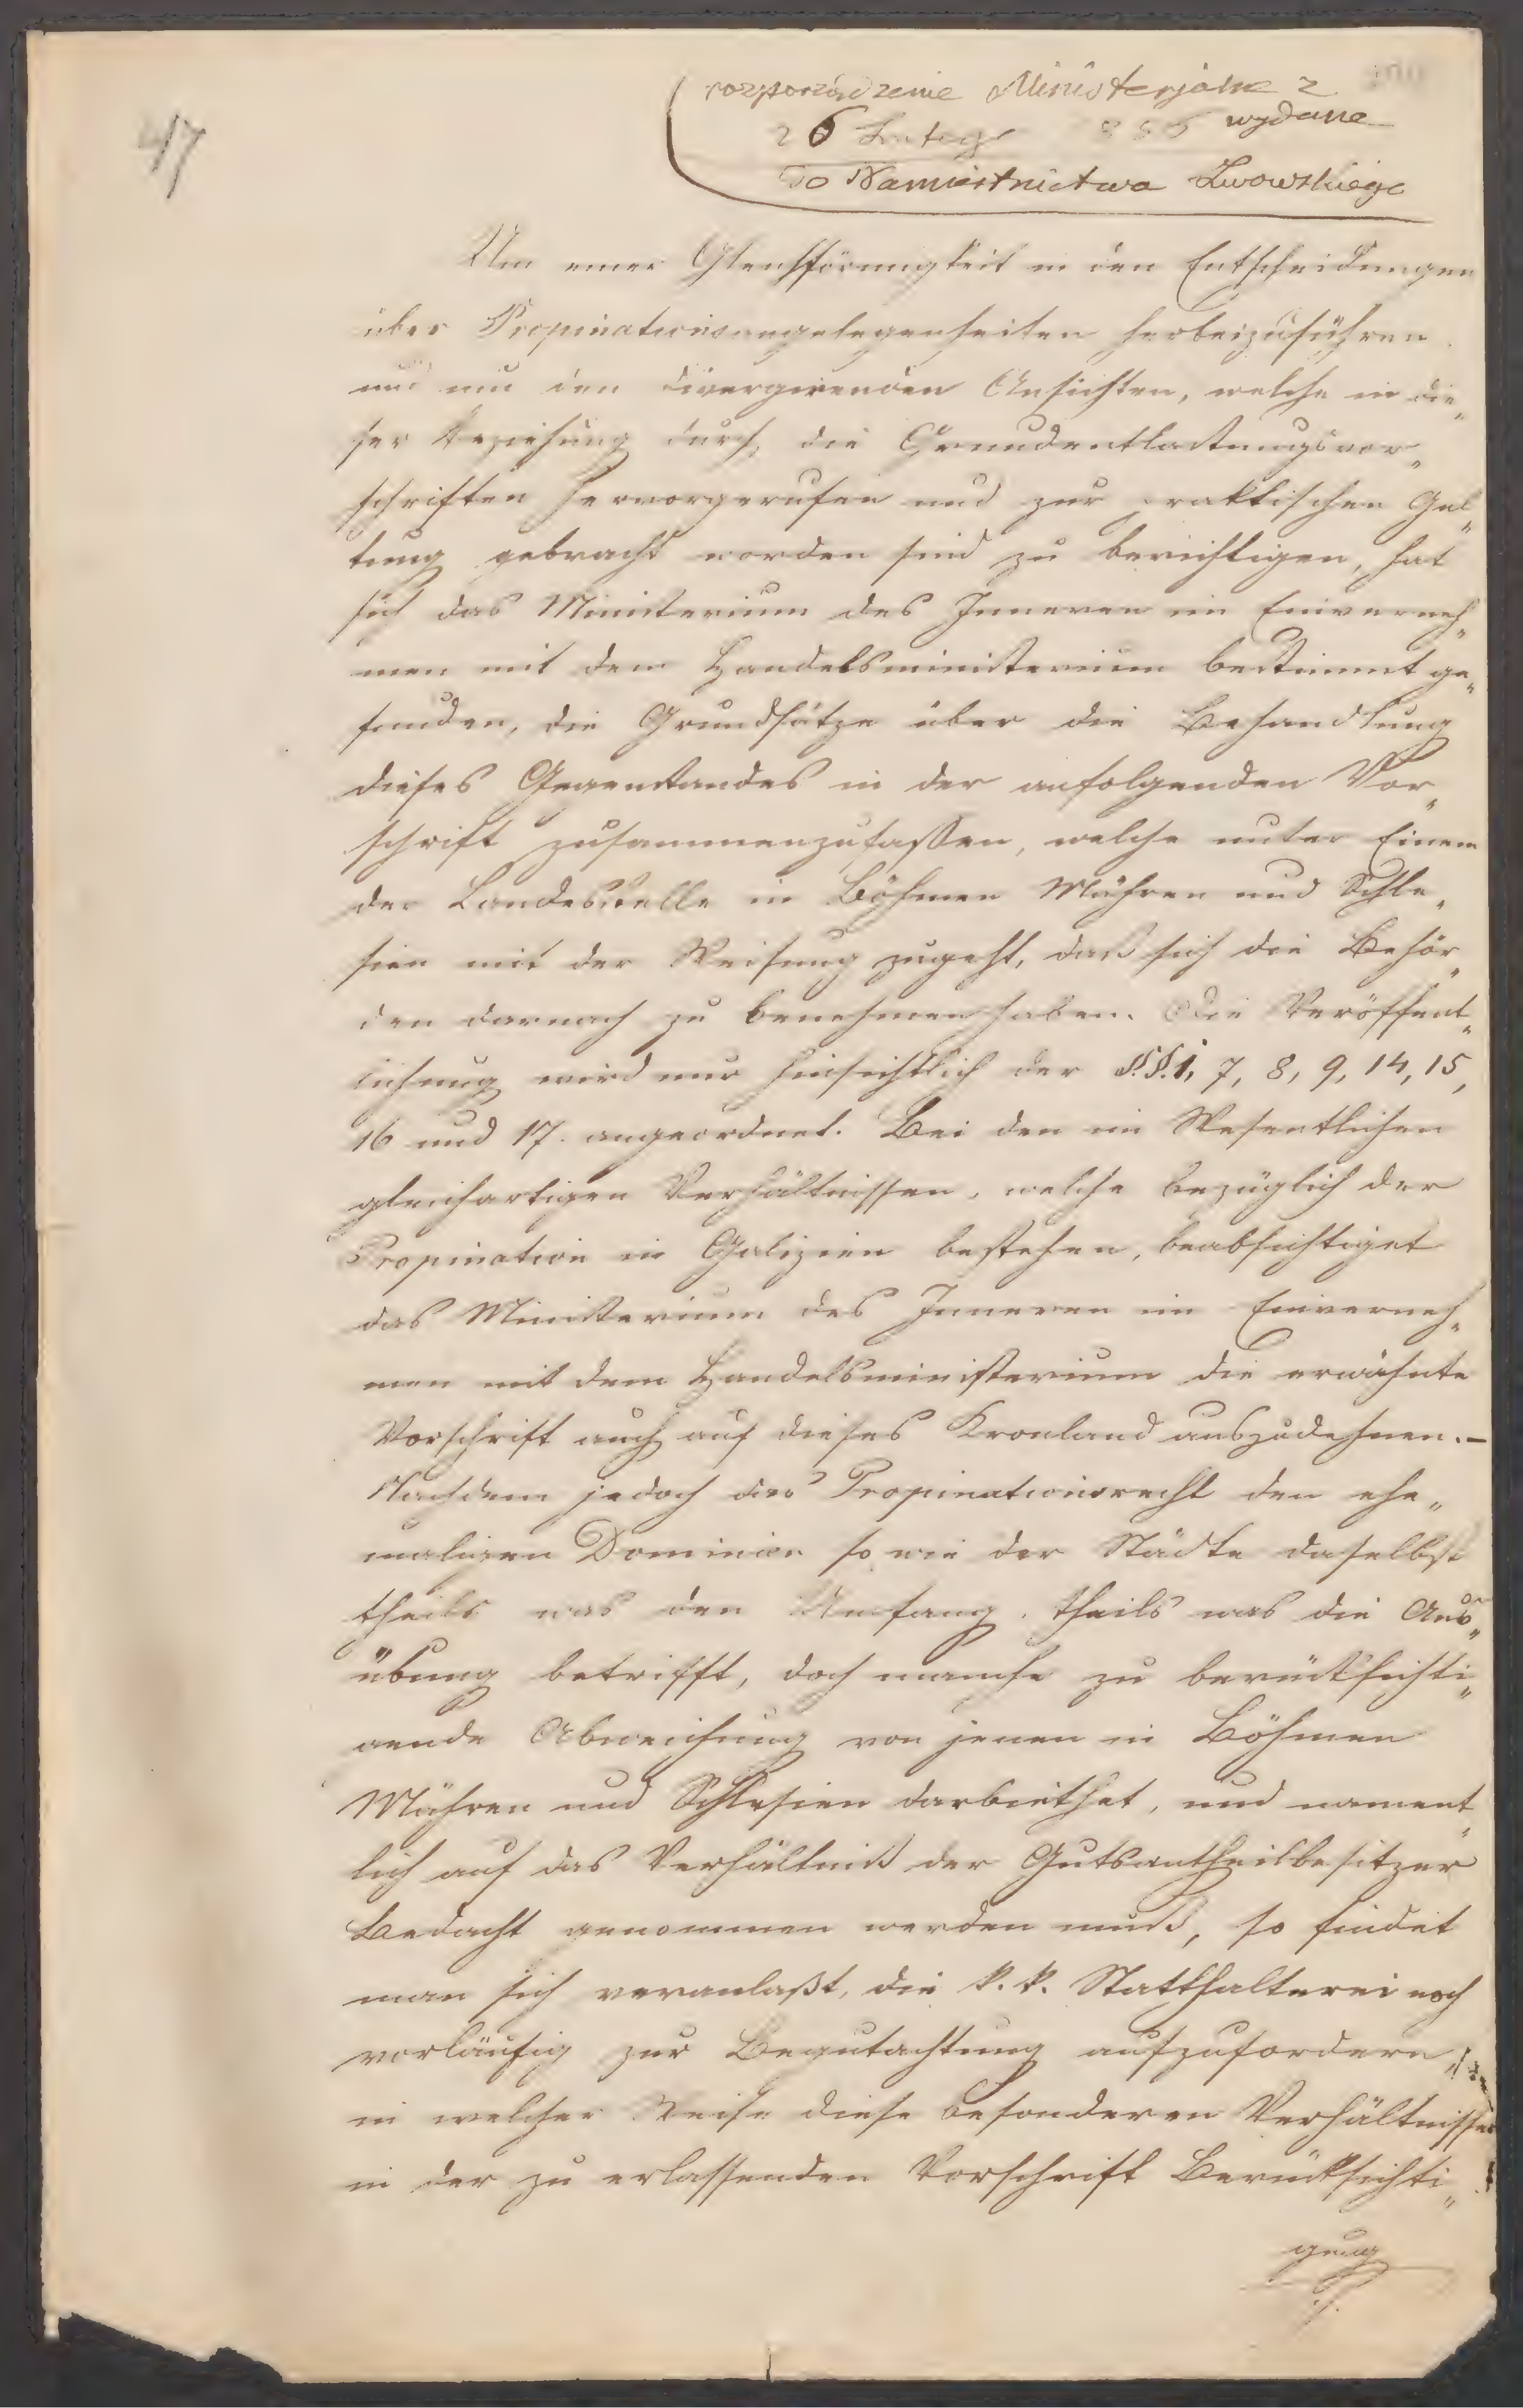 47
rozporządzenie Ministerjalne z
26 Lutego 856 wydane
do Namiestnictwa Lwowskiego
Um eine Gleichförmigkeit in den Entscheidungen
über Propinationsangelegenheiten herbeizuführen
und um den divergirenden Ansichten, welche in die„
ser Beziehung durch die Grundentlastungsvor„
schriften hervorgerufen und zur praktischen Gel„
tung gebracht worden sind zu berichtigen, hat
sich das Ministerium des Inneren im Einverneh„
men mit dem Handelsministerium bestimmt ge„
funden, die Grundsätze über die Behandlung
dieses Gegenstandes in der anfolgenden Vor„
schrift zusammenzufassen, welche unter Einem
der Landesstelle in Böhmen Mähren und Schle„
sien mit der Weisung zugeht, daß sich die Behör„
den darnach zu benehmen haben. Die Veröffent„
lichung wird nur hinsichtlich der §.§. 1, 7, 8, 9, 14, 15,
16 und 17. angeordnet. Bei den im Wesentlichen
gleichartigen Verhältnissen, welche bezüglich der
Propination in Galizien bestehen, beabsichtiget
das Ministerium des Inneren im Einverneh„
men mit dem Handelsministerium die erwähnte
Vorschrift auch auf dieses Kronland auszudehnen. –
Nachdem jedoch das Propinationsrecht den ehe„
maligen Dominien so wie der Städte daselbst
theils was den Umfang, theils was die Aus„
übung betrifft, doch manche zu berücksichti„
gende Abweichung von jenen in Böhmen
Mähren und Schlesien darbiethet, und nament„
lich auf das Verhältniß der Gutsantheilbesitzer
Bedacht genommen werden muß, so findet
man sich veranlaßt, die k. k. Statthalterei noch
vorläufig zur Begutachtung aufzufordern,
in welcher Weise diese besonderen Verhältnisse
in der zu erlassenden Vorschrift Berücksichti„
gung